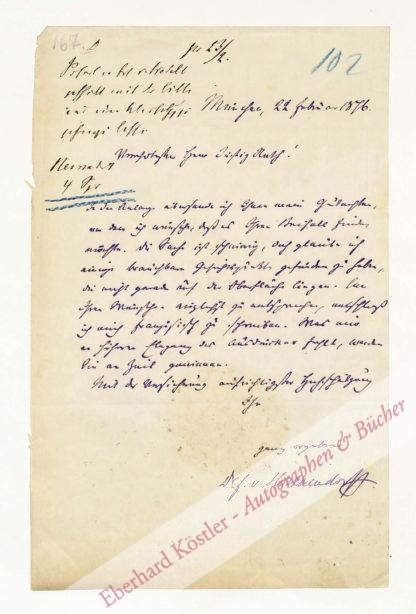 167.
pr 23/2.
102
München, 22 Februar 1876.
Verehrtester Herr Justiz Rath!
In der Anlage übersende ich Ihnen mein Gutachten,
von dem ich wünsche, daß es Ihren Beifall finden
möchte. Die Sache ist schwierig, doch glaube ich
einige brauchbare Gesichtspunkte gefunden zu haben,
die nicht gerade auf der Oberfläche liegen. Um
Ihren Wünschen zu entsprechen, entschloß
ich mich französisch zu schreiben. Was mir
an Eleganz des Ausdruckes fehlt, werden
Sie an Zeit gewinnen.
Mit der Versicherung aufrichtigster Hochschätzung
Ihr
ganz ergebener
Dr F. v. Holtzendorff
Eberhard Köstler - Autographen & Bücher